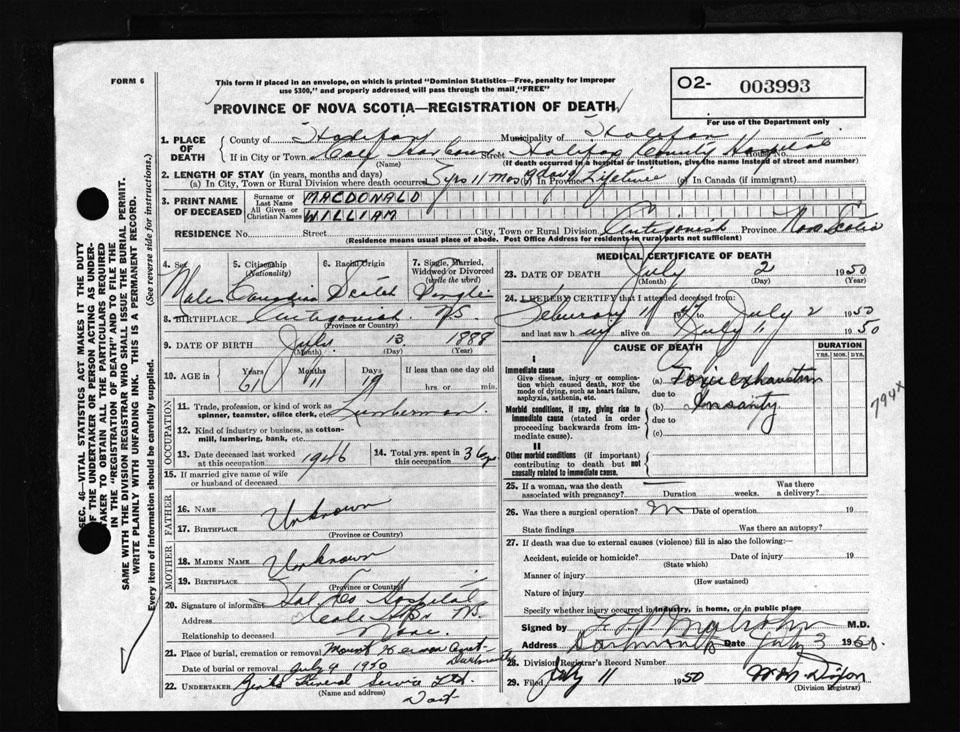 FORM 6
This form if placed in an envelope, on which is printed "Dominion Statistics—Free, penalty for improper
use $300," and properly addressed will pass through the mail, "FREE"
PROVINCE OF NOVA SCOTIA—REGISTRATION OF DEATH
O2- 003993
For use of the Department only
SEC. 46—VITAL STATISTICS ACT MAKES IT THE DUTY
OF THE UNDERTAKER OR PERSON ACTING AS UNDER-
TAKER TO OBTAIN ALL THE PARTICULARS REQUIRED
IN THE "REGISTRATION OF DEATH" AND TO FILE THE
SAME WITH THE DIVISION REGISTRAR WHO SHALL ISSUE THE BURIAL PERMIT.
WRITE PLAINLY WITH UNFADING INK. THIS IS A PERMANENT RECORD.
Every item of information should be carefully supplied. (See reverse side for instructions.)
1. PLACE OF DEATH
County of Halifax Municipality of Halifax
If in City or Town Cole Harbour Street Halifax County Hospital House No.
(Name) (If death occurred in a hospital or institution, give the name instead of street and number)
2. LENGTH OF STAY (in years, months and days)
(a) In City, Town or Rural Division where death occurred 5 yrs 11 mos days (b) In Province Lifetime (c) In Canada (if immigrant)
3. PRINT NAME OF DECEASED
Surname or Last Name MACDONALD
All Given or Christian Names WILLIAM
RESIDENCE No. Street City, Town or Rural Division Antigonish Province Nova Scotia
(Residence means usual place of abode. Post Office Address for residents in rural parts not sufficient)
4. Sex Male
5. Citizenship (Nationality) Canadian
6. Racial Origin Scotch
7. Single, Married, Widowed or Divorced (write the word) Single
8. BIRTHPLACE Antigonish N.S.
(Province or Country)
9. DATE OF BIRTH July 13 1888
(Month) (Day) (Year)
10. AGE in Years 61 Months 11 Days 19 If less than one day old
hrs. or min.
OCCUPATION
11. Trade, profession, or kind of work as
spinner, teamster, office clerk, etc. Lumberman
12. Kind of industry or business, as cotton-
mill, lumbering, bank, etc.
13. Date deceased last worked
at this occupation 1946
14. Total yrs. spent in
this occupation 36
15. If married give name of wife
or husband of deceased
FATHER
16. NAME Unknown
17. BIRTHPLACE
(Province or Country)
MOTHER
18. MAIDEN NAME Unknown
19. BIRTHPLACE
(Province or Country)
20. Signature of informant Hal Co Hospital
Address Cole Hbr. N.S.
Relationship to deceased None
21. Place of burial, cremation or removal Mount Hermon Dartmouth
Date of burial or removal July 4 1950
22. UNDERTAKER Funeral Service Ltd.
(Name and address) Dart
MEDICAL CERTIFICATE OF DEATH
23. DATE OF DEATH July 2 1950
(Month) (Day) (Year)
24. I HEREBY CERTIFY that I attended deceased from
February 11 1947 to July 2 1950
and last saw h alive on July 1 1950
CAUSE OF DEATH
DURATION
YRS. MOS. DYS.
I
Immediate cause
Give disease, injury or complica-
tion which caused death, NOT the
mode of dying, such as heart failure,
asphyxia, asthenia, etc.
(a) Toxic exhaustion
due to
Morbid conditions, if any, giving rise to
immediate cause (stated in order
proceeding backwards from im-
mediate cause).
(b) Insanity
due to
(c)
II
Other morbid conditions (if important)
contributing to death but not
causally related to immediate cause.
794x
25. If a woman, was the death
associated with pregnancy? Duration weeks. Was there
a delivery?
26. Was there a surgical operation? No Date of operation 19
State findings Was there an autopsy?
27. If death was due to external causes (violence) fill in also the following:—
Accident, suicide or homicide? Date of injury 19
(State which)
Manner of injury
(How sustained)
Nature of injury
Specify whether injury occurred in industry, in home, or in public place
Signed by M.D.
Address Dartmouth Date July 3 1950
28. Division Registrar's Record Number
29. Filed July 11 1950 W.M. Dixon
(Division Registrar)